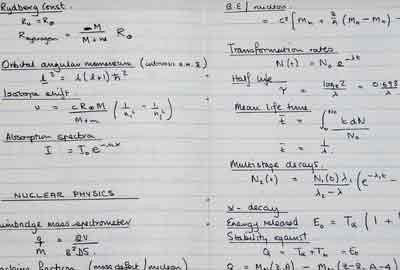 Rydberg Const.
R₀ = R∞
R hydrogen = M / M+m R∞
Orbital angular momentum
l² = l(l+1)ħ²
Isotope shift.
ν = cR∞M / M+m (1/n₁² − 1/n₂²)
Absorption spectra
I = I₀e
NUCLEAR PHYSICS
mass spectrometer
q/M = / B²DS
fraction (mass defect / nucleon)
B.E / nucleon
= c² [Mn + (Mn − Mn) −
Transformation rates
N(t) = N₀ e^-λt
Half life
τ = loge2 / λ = 0.693
Mean life time
t̄ = ∫₀^N₀ t dN / N₀
t̄ = 1/λ
Multistage decays.
N₂(t) = N₁(0)λ₁ / λ₂ − λ₁ (e^-λ₁t −
α - decay
Energy released E₀ = Tα (1 +
Stability against
Q = Tα + Tb = E₀